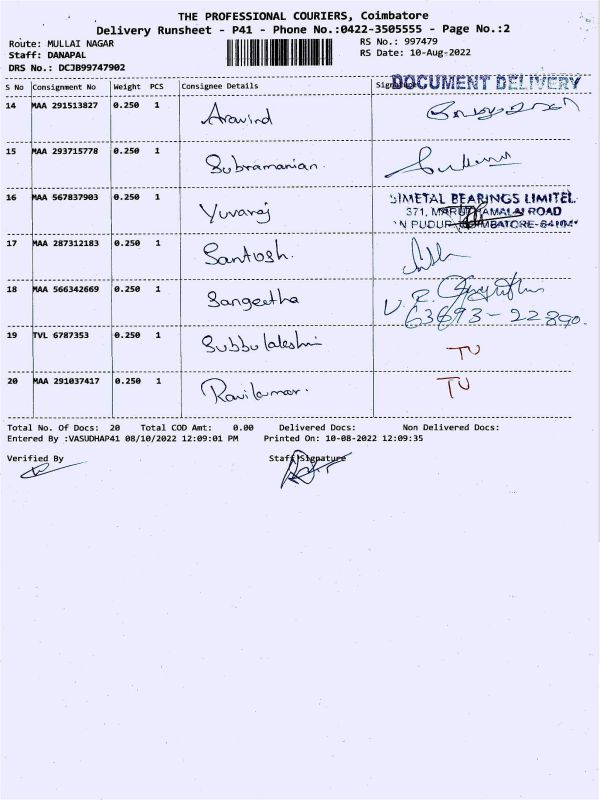 THE PROFESSIONAL COURIERS, Coimbatore
Delivery Runsheet - P41 - Phone No.:0422-3505555 - Page No.:2
Route: MULLAI NAGAR RS No.: 997479
Staff: DANAPAL RS Date: 10-Aug-2022
DRS No.: DCJB99747902
DOCUMENT DELIVERY
S No Consignment No Weight PCS Consignee Details Signature
14 MAA 291513827 0.250 1 Aravind
15 MAA 293715778 0.250 1 Subramanian.
16 MAA 567837903 0.250 1 Yuvaraj
BIMETAL BEARINGS LIMITED.
371, MARUTHAMALAI ROAD
17 MAA 287312183 0.250 1 Santhosh.
18 MAA 566342669 0.250 1 Sangeetha
63693-22890.
19 TVL 6787353 0.250 1 Subbulakshmi TU
20 MAA 291037417 0.250 1 Ravikumar. TU
Total No. Of Docs: 20 Total COD Amt: 0.00 Delivered Docs: Non Delivered Docs:
Entered By :VASUDHAP41 08/10/2022 12:09:01 PM Printed On: 10-08-2022 12:09:35
Verified By Staff Signature